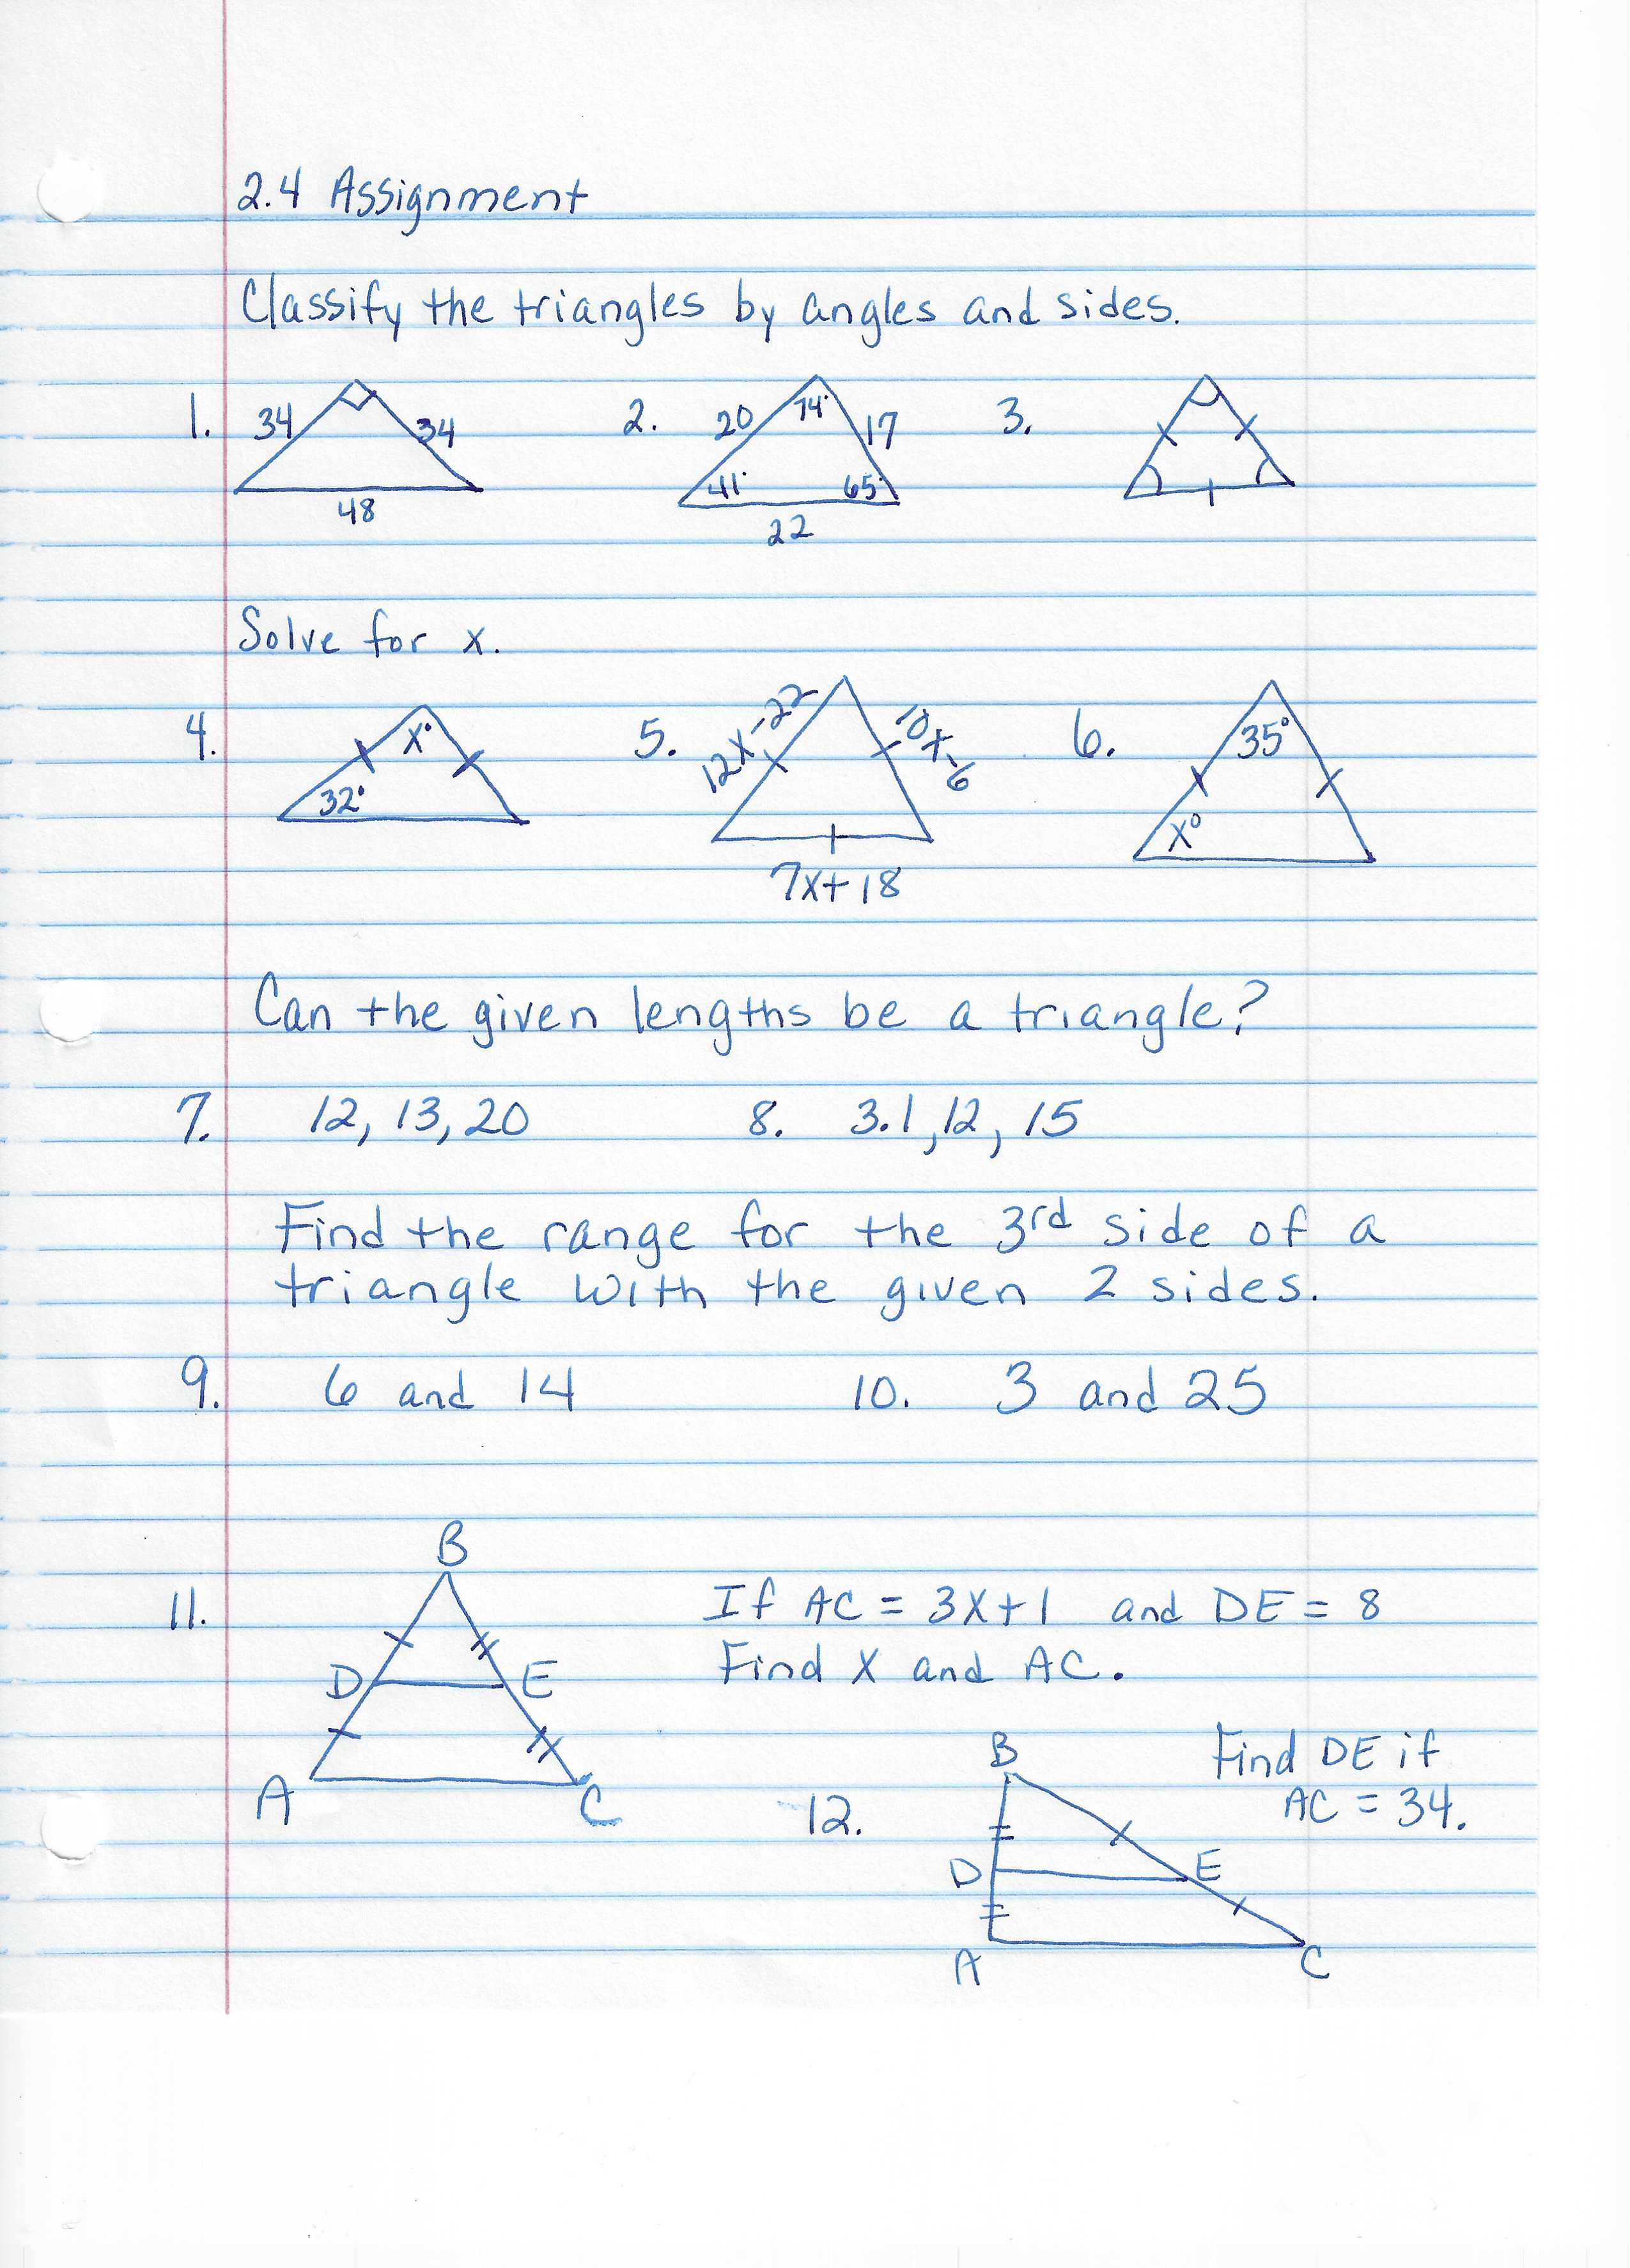 2.4 Assignment
Classify the triangles by angles and sides.
1. 34 34 48
2. 20 74° 17 41° 65° 22
3.
Solve for x.
4. x° 32°
5. 12x-22 10x-6 7x+18
6. 35° x°
Can the given lengths be a triangle?
7. 12, 13, 20
8. 3.1, 12, 15
Find the range for the 3rd side of a
triangle with the given 2 sides.
9. 6 and 14
10. 3 and 25
11. B D E A C
If AC = 3x+1 and DE = 8
Find x and AC.
12. B D E A C
Find DE if
AC = 34.